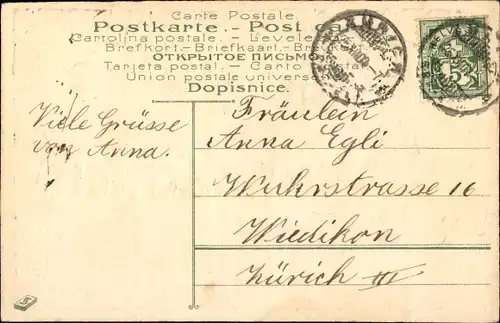 Carte Postale.
Postkarte. - Post c
Cartolina postale. - Levele
Brefkort. - Briefkaart. - Br
ОТКРЫТОЕ ПИСЬМО
Tarjeta postal. - Carto
Union postale universe
Dopisnice.
Viele Grüsse
von Anna.
Fräulein
Anna Egli
Wuhrstrasse 16
Wiedikon
Zürich III
5